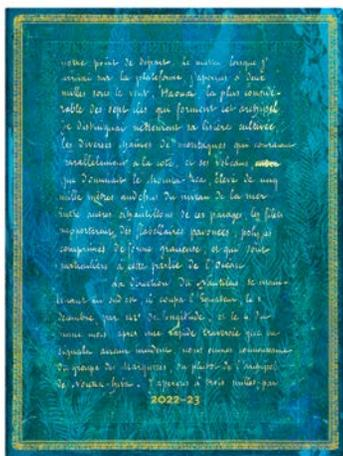 notre point de départ. Le matin lorsque j'
arrivai sur la plateforme, j'aperçus à deux
milles sous le vent, Haouaï, la plus considé-
rable des sept îles qui forment cet archipel
Je distinguai nettement sa lisière cultivée
les diverses chaînes de montagnes qui courent
parallèlement à la côte, et ses volcans
que dominait le Mouna-Rea, élevé de cinq
mille mètres au dessus du niveau de la mer
autres échantillons de ces parages, les filets
rapportèrent des flabellaires pavonées, polypes
comprimés de forme gracieuse, et qui sont
particuliers à cette partie de l'Océan
La direction du Nautilus se main-
tenait au sud-est, il coupa l'Equateur, le 1
décembre par 142° de longitude, et le 4 du
même mois, après une rapide traversée que ne
signala aucun incident, nous eûmes connaissance
du groupe des Marquises,
de Nouka-hiva. J'aperçus à trois milles par
2022-23